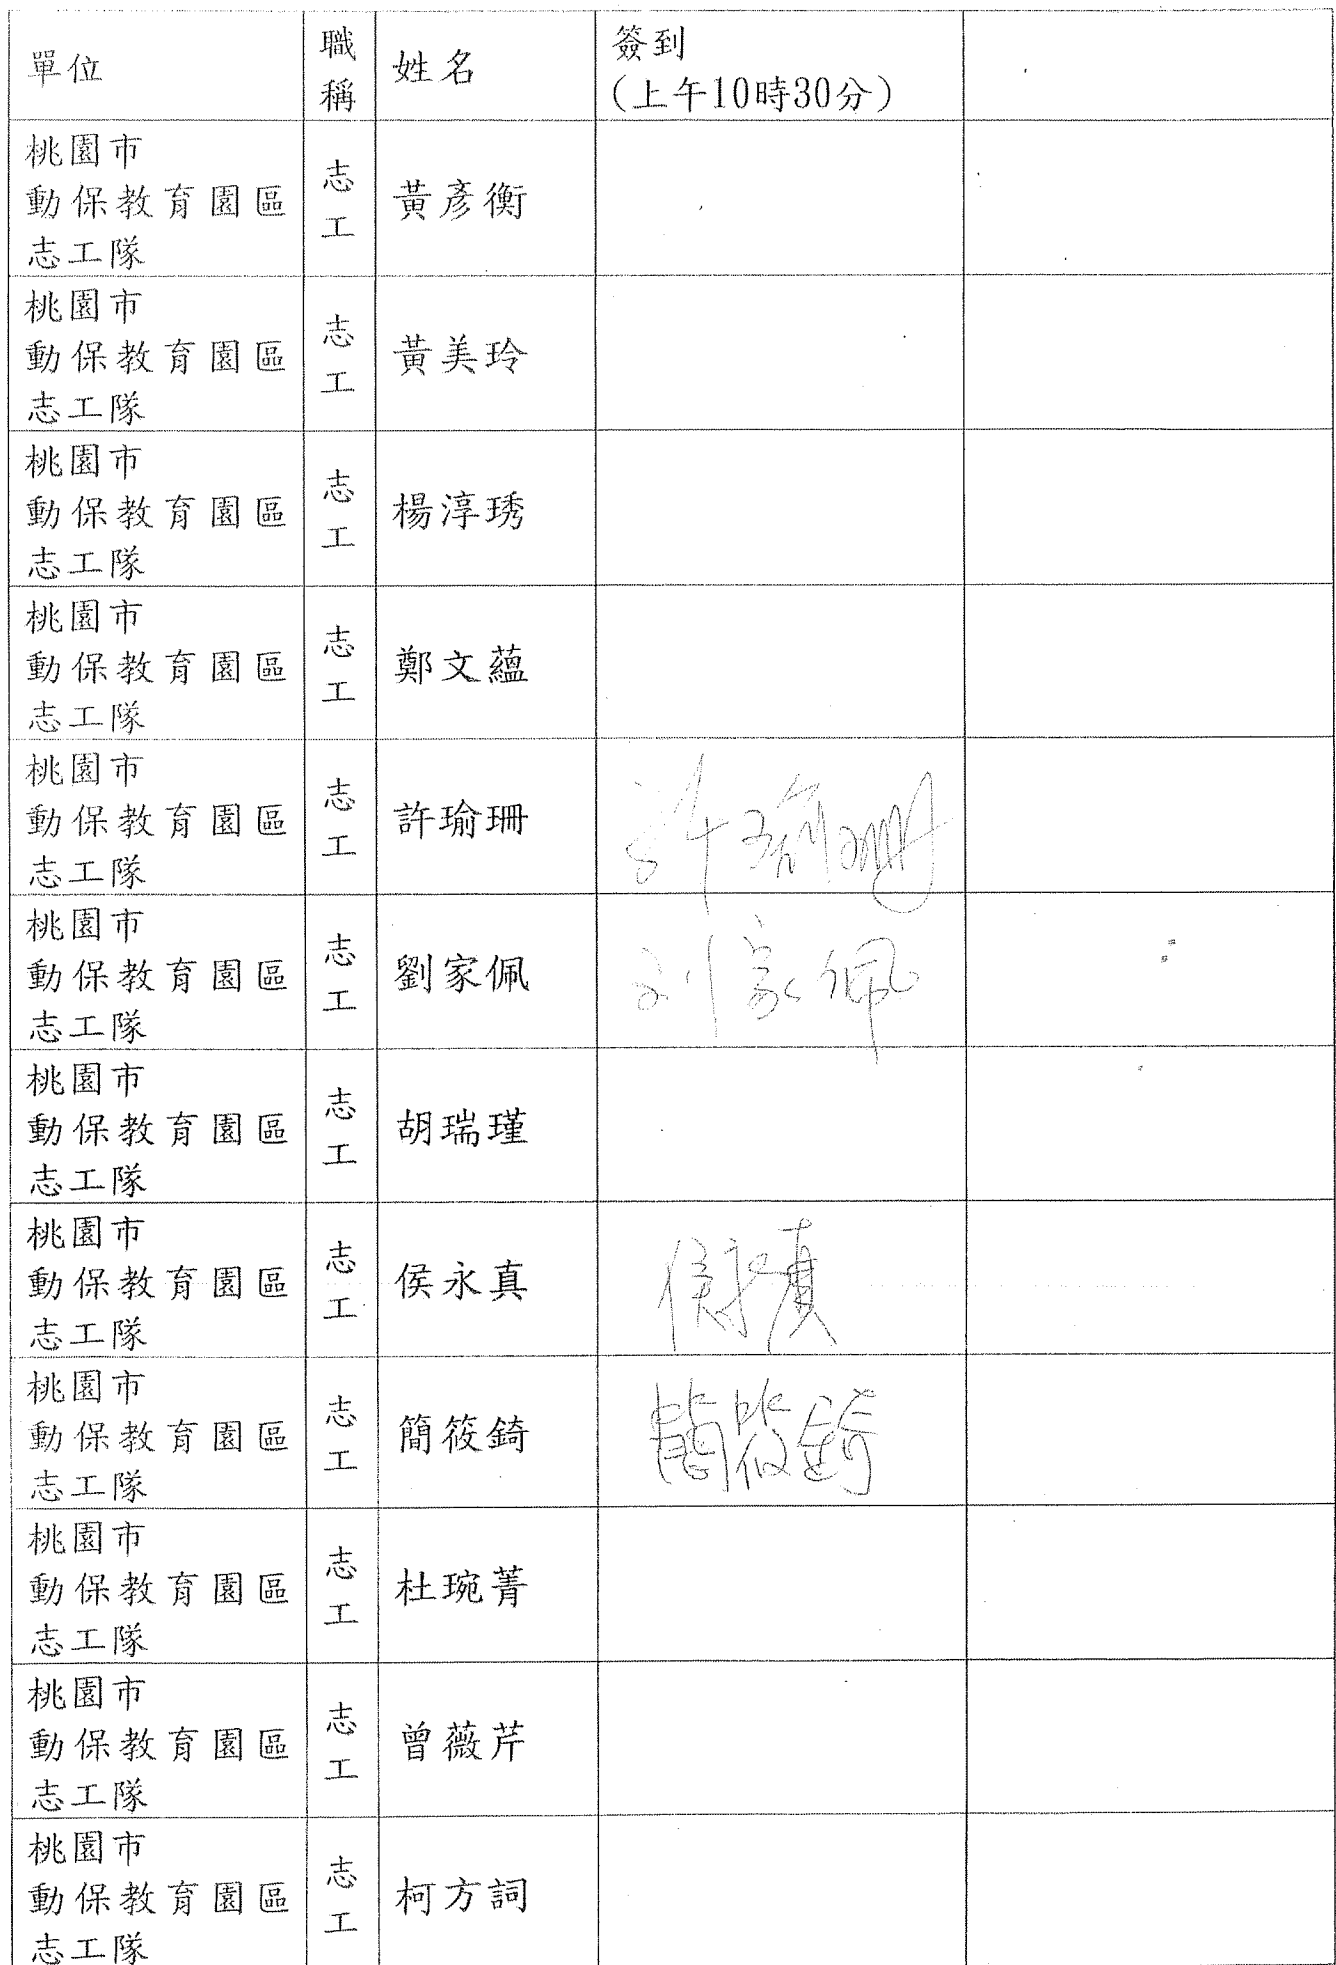 單位 職稱 姓名 簽到
(上午10時30分)
桃園市
動保教育園區
志工隊
志工
黃彥衡
桃園市
動保教育園區
志工隊
志工
黃美玲
桃園市
動保教育園區
志工隊
志工
楊淳琇
桃園市
動保教育園區
志工隊
志工
鄭文蘊
桃園市
動保教育園區
志工隊
志工
許瑜珊
許瑜珊
桃園市
動保教育園區
志工隊
志工
劉家佩
刘家佩
桃園市
動保教育園區
志工隊
志工
胡瑞瑾
桃園市
動保教育園區
志工隊
志工
侯永真
侯永真
桃園市
動保教育園區
志工隊
志工
簡筱錡
簡筱錡
桃園市
動保教育園區
志工隊
志工
杜琬菁
桃園市
動保教育園區
志工隊
志工
曾薇芹
桃園市
動保教育園區
志工隊
志工
柯方詞